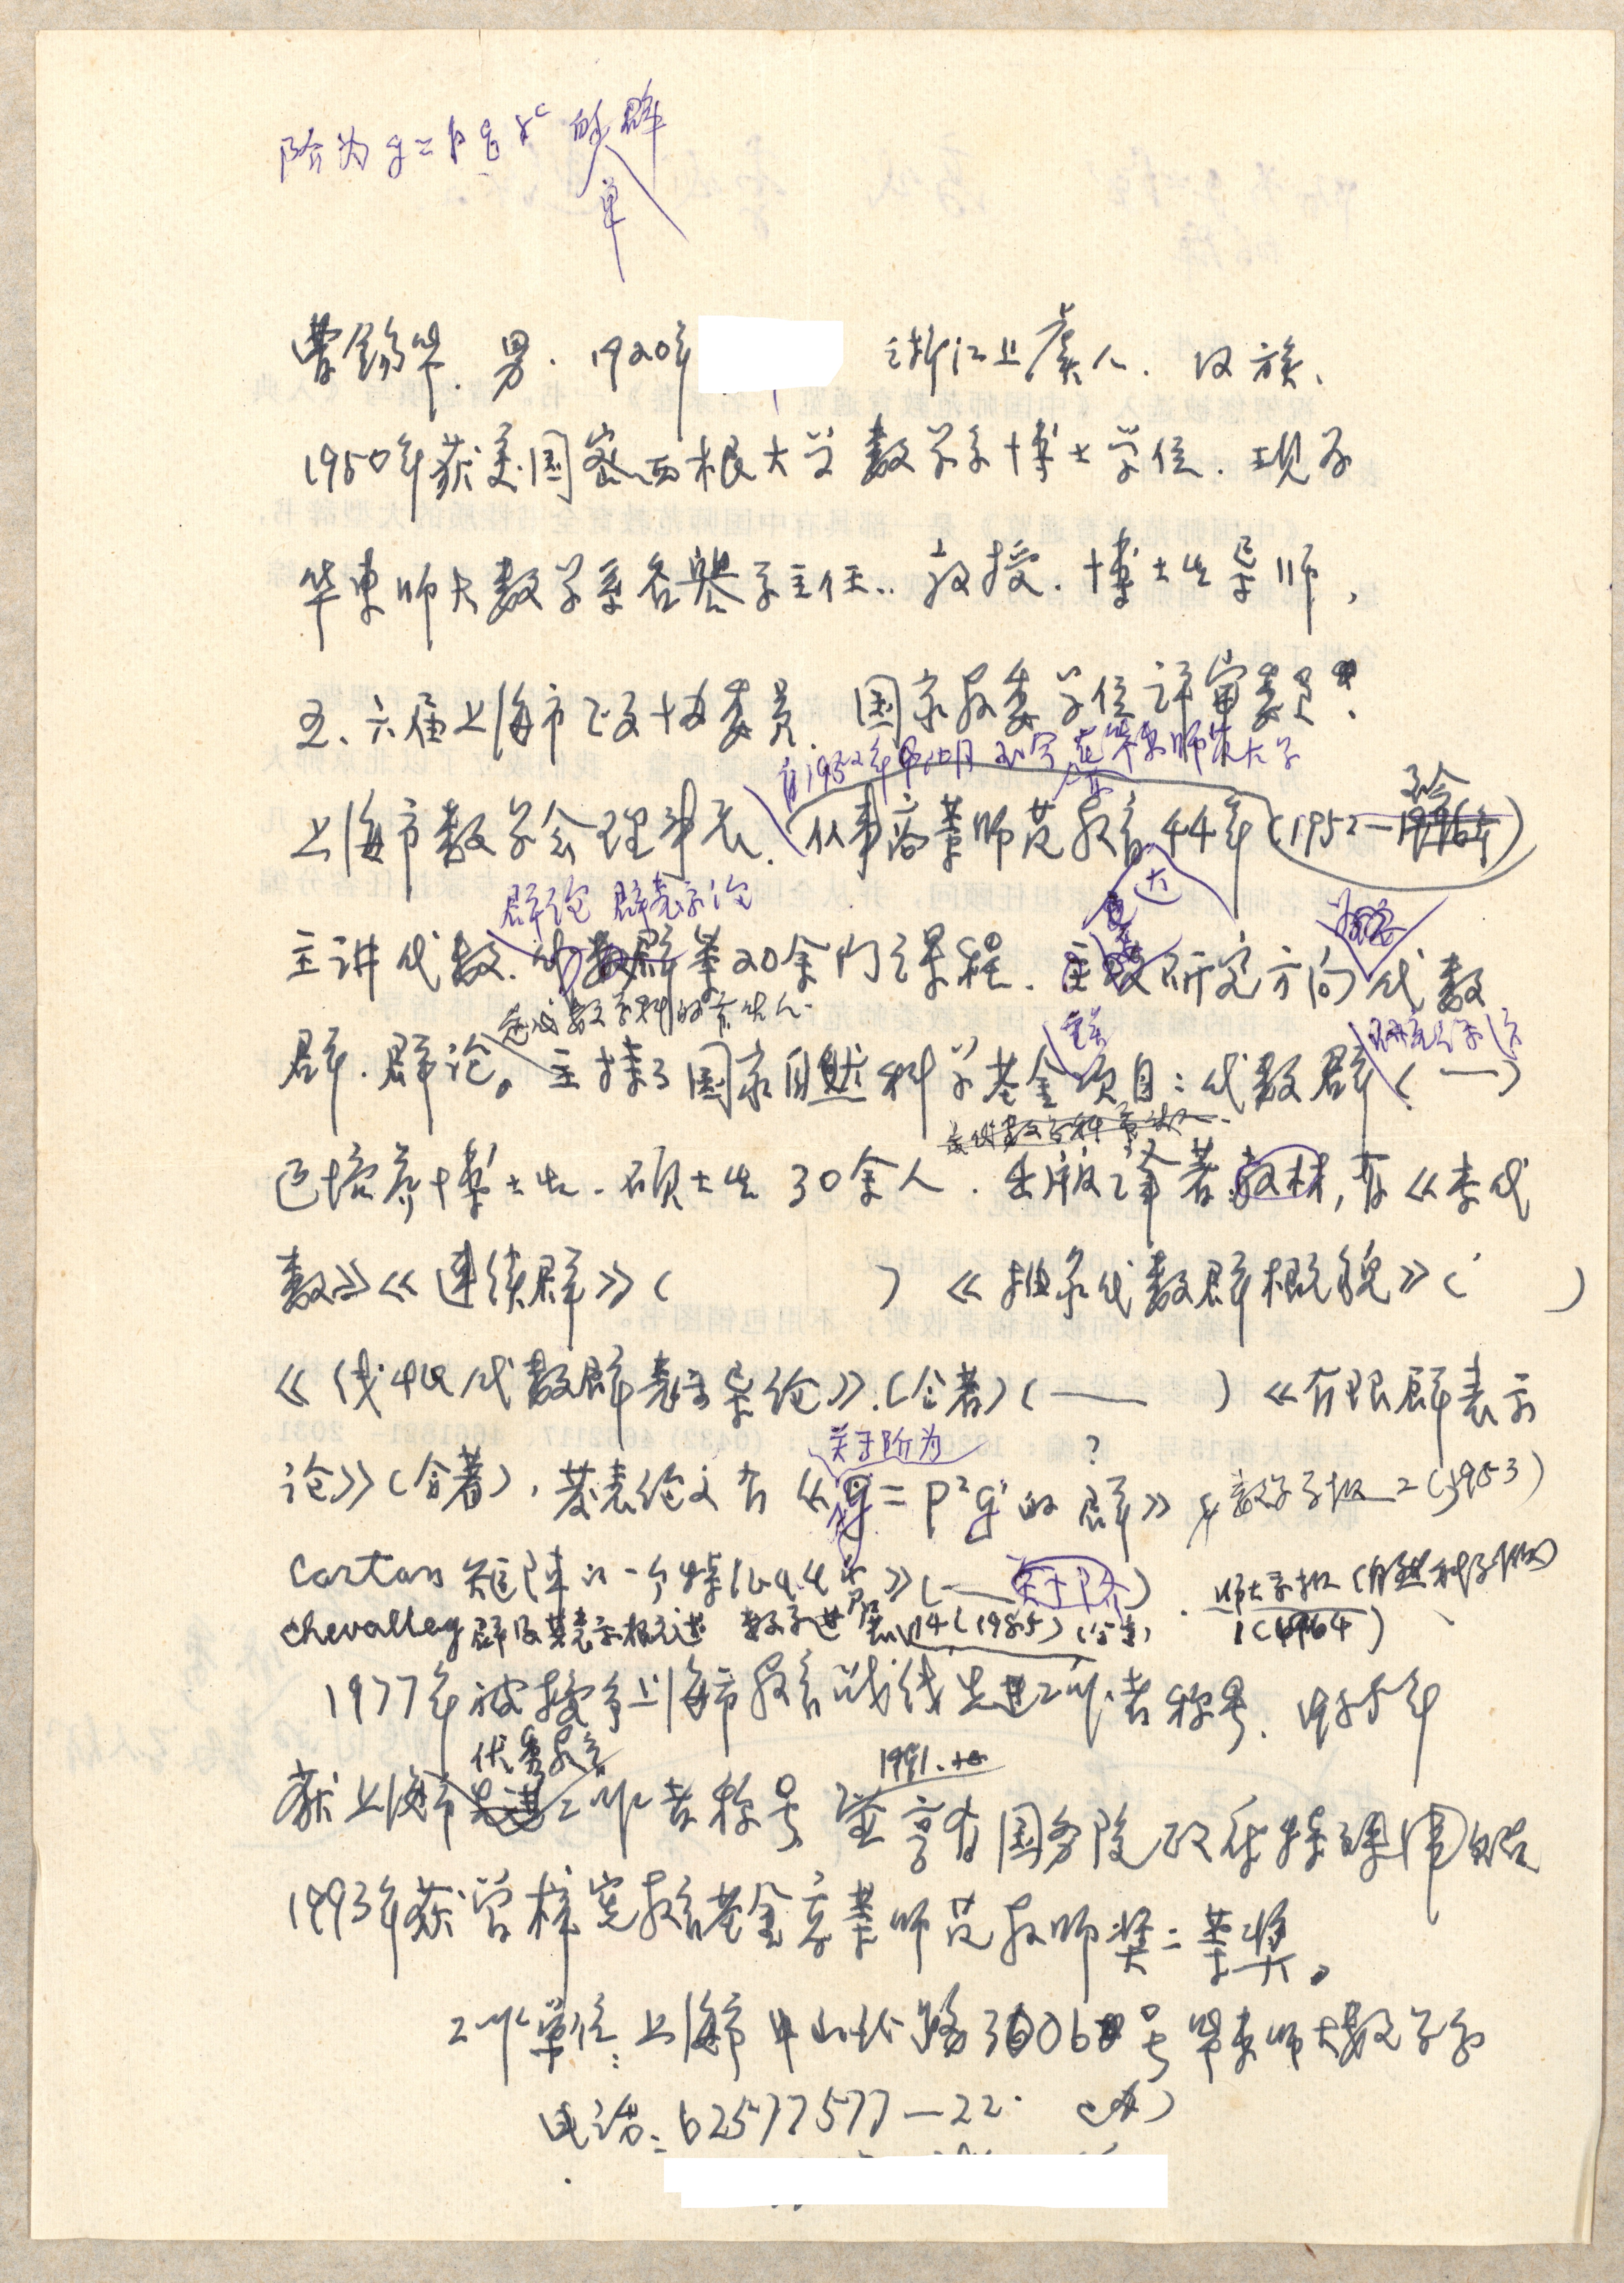 阶为g=p q r^c 的群
单
曹锡华. 男. 1920年 浙江上虞人. 汉族、
1950年获美国密西根大学数学系博士学位. 现为
华东师大数学系名誉系主任.. 教授. 博士生导师,
五、六届上海市政协委员. 国家教委学位评审委员、
自1952年 至今在华东师范大学
上海市数学会理事长. 从事高等师范教育44年(1952—1996年)
至今
群论 群表示论
主讲代数. 代数群等20余门课程. 主要研究方向代数
数学学科的带头人.
群. 群论。主持了国家自然科学基金项目: 代数群(一)
重点
已培养博士生. 硕士生30余人. 出版译著教材, 有《李代
数》《连续群》( ) 《线性代数群概貌》( )
《线性代数群表示导论》.(合著)(— ) 《有限群表示
关于阶为 ?
论》(合著), 发表论文有《g=p²q^r的群》 数学学报 2(1953)
Cartan 矩阵的一个特征 》(— 关于阶). 师大学报(自然科学版)
1(1964)
Chevalley群及其表示概述 数学进展 14(1985)(合著)
1977年被授予上海市教育战线先进工作者称号. 1985年
优秀教育
获上海市先进工作者称号
1991.
并享有国务院政府特殊津贴
1993年获曾梓宪教育基金高等师范教师奖二等奖。
工作单位: 上海市中山北路3006号华东师大数学系
电话: 62577577—22 (办)